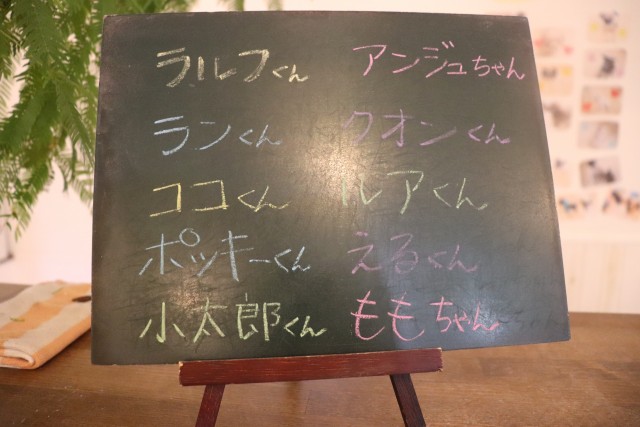 ラルフくん アンジュちゃん
ランくん クオンくん
ココくん ルアくん
ポッキーくん えるくん
小太郎くん ももちゃん